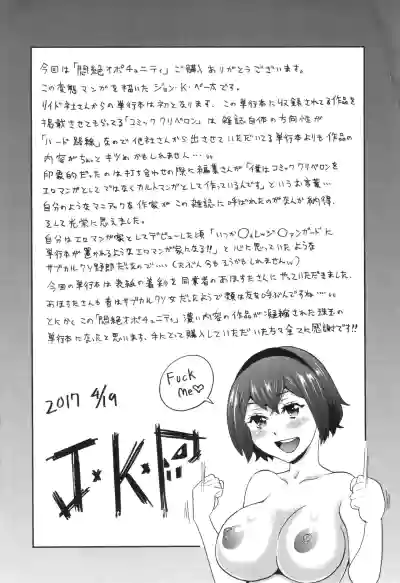 今回は「悶絶オポチュニティ」ご購入ありがとうございます。
この変態マンガを描いたジョン・K・ペー太です。
リイド社さんからの単行本は初となります。この単行本に収録されてる作品を
掲載させてもらってる「コミッククリベロン」は、雑誌自体の方向性が
「ハード路線」なので他社さんから出させていただいてる単行本よりも作品の
内容がちょいとキツめかもしれません…
印象的だったのは打ち合わせの際に編集さんが「僕はコミッククリベロンを
エロマンガとしてではなくカルトマンガとして作っているんです」という お言葉…
自分のようなマニアックな作家がこの雑誌に呼ばれたのがなんか納得、
そして光栄に思えました。
自分はエロマンガ家としてデビューした頃「いつか〇ィレッジ〇ァンガードに
単行本が置かれるようなエロマンガ家になる!!」と心に思っていたような
サブカルクソ野郎だしなので…(たぶん今もそうかもしれませんw)
今回の単行本は表紙の着彩を同業者のあほすたさんにやっていただきました。
あほすたさんも昔はサブカルクソ女だったようで類は友を呼ぶんですね…
とにかくこの「悶絶オポチュニティ」濃い内容の作品が凝縮された珠玉の
単行本になったと思います、手にとって購入していただいた方々全てに感謝です!!
Fuck
me♡
2017 4/19
J・K・P